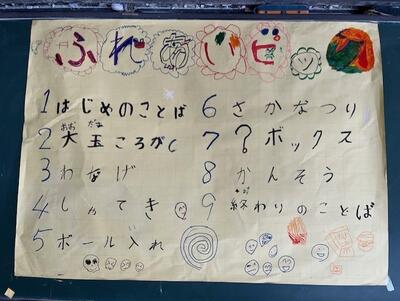 ふれあいピッ
1 はじめのことば
おおだま
2 大玉ころがし
3 わなげ
4 しゃてき
5 ボール入れ
6 さかなつり
7 ？ボックス
8 かんそう
お
9 終わりのことば